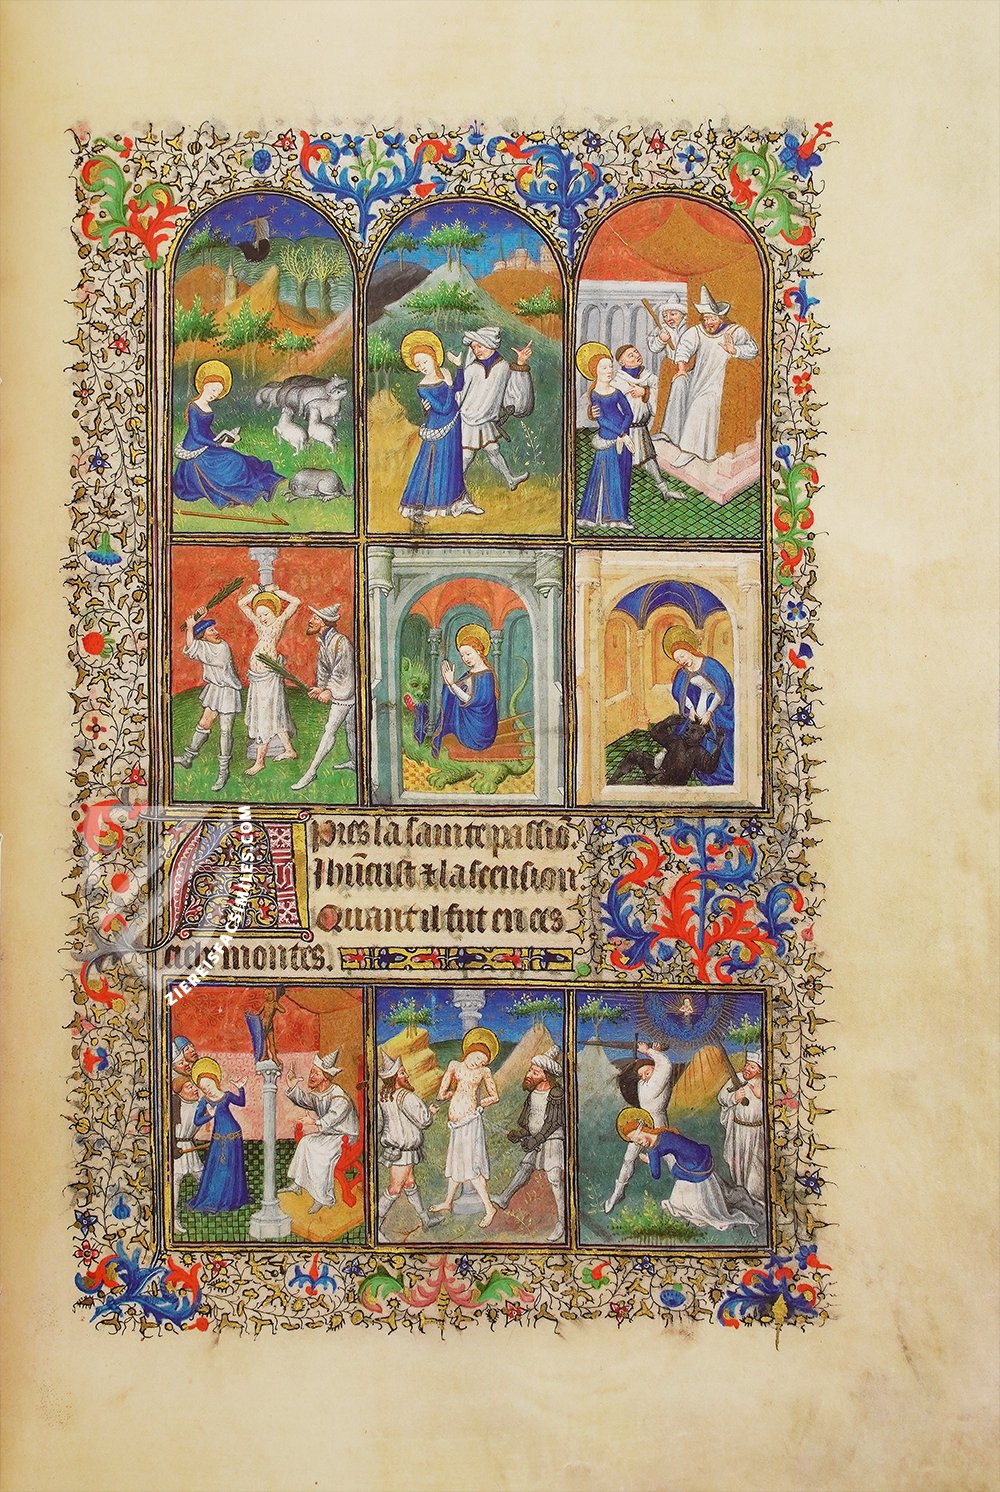 Apres la sainte passiō.
Ihūcrist & lascension.
Quant il fut en ces
ciels montes.
ZIEREIS FACSIMILES.COM